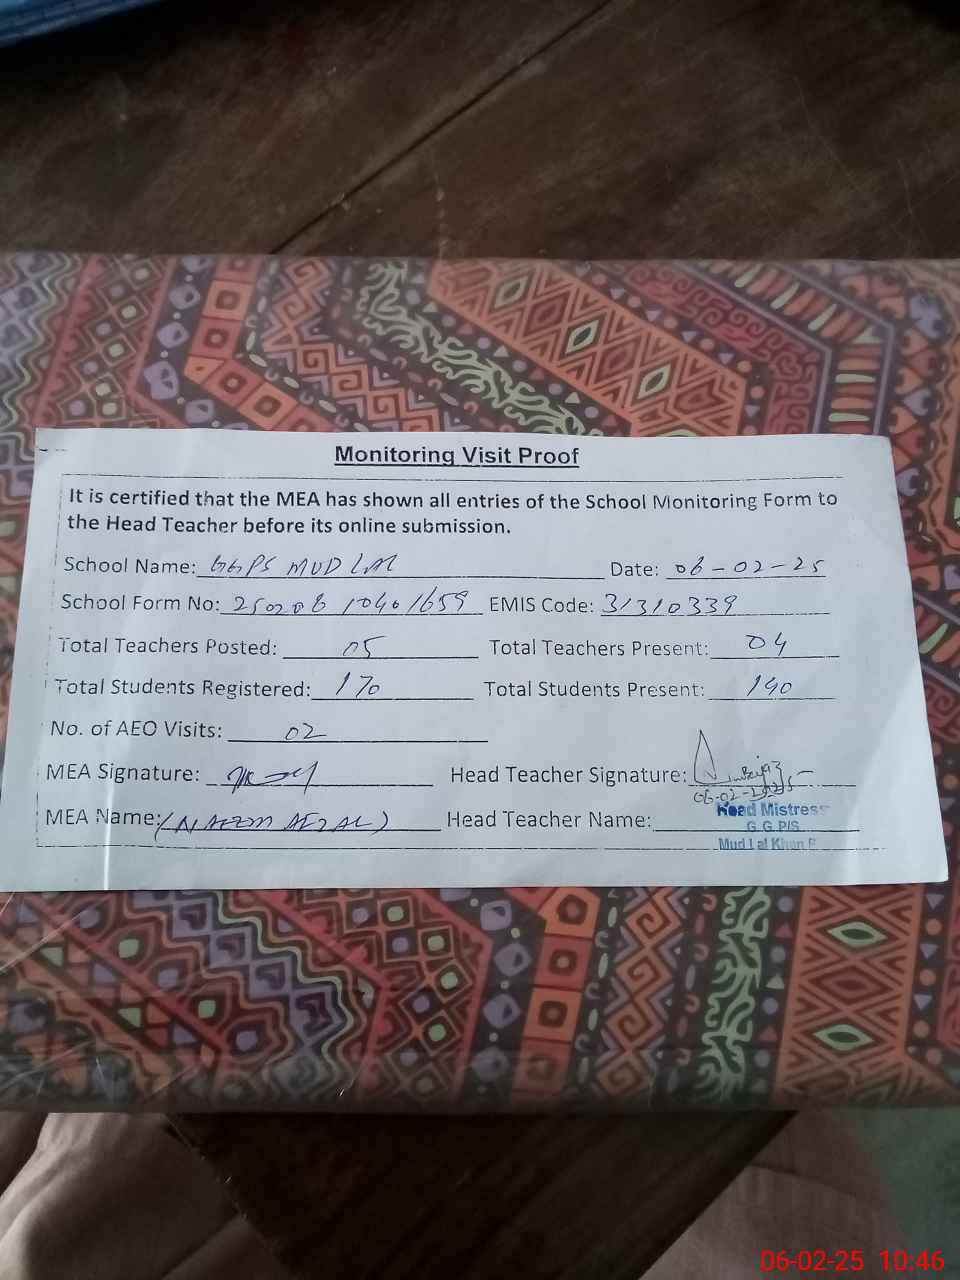 Monitoring Visit Proof
It is certified that the MEA has shown all entries of the School Monitoring Form to
the Head Teacher before its online submission.
School Name: GGPS MUD LAL Date: 06-02-25
School Form No: 250206 10401659 EMIS Code: 31310339
Total Teachers Posted: 05 Total Teachers Present: 04
Total Students Registered: 170 Total Students Present: 140
No. of AEO Visits: 02
MEA Signature: Head Teacher Signature:
06-02-2025
MEA Name: (NAEEM AFZAL) Head Teacher Name:
Head Mistress
G G P/S
Mud Lal Khan
06-02-25 10:46